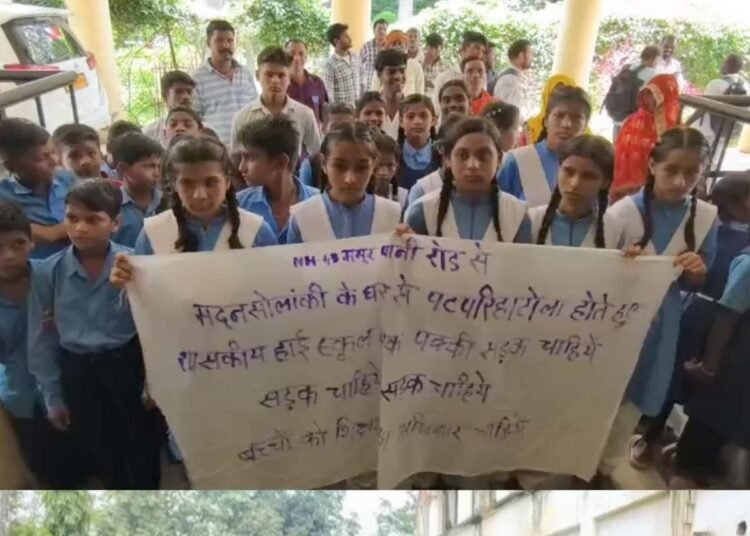 NH 43 ममूर पानी रोड से
मदनसोलांकी के घर से पटपरिहाटोला होते हुए
शासकीय हाई स्कूल तक पक्की सड़क चाहिये
सड़क चाहिये सड़क चाहिये
बच्चों को शिक्षा का अधिकार चाहिये